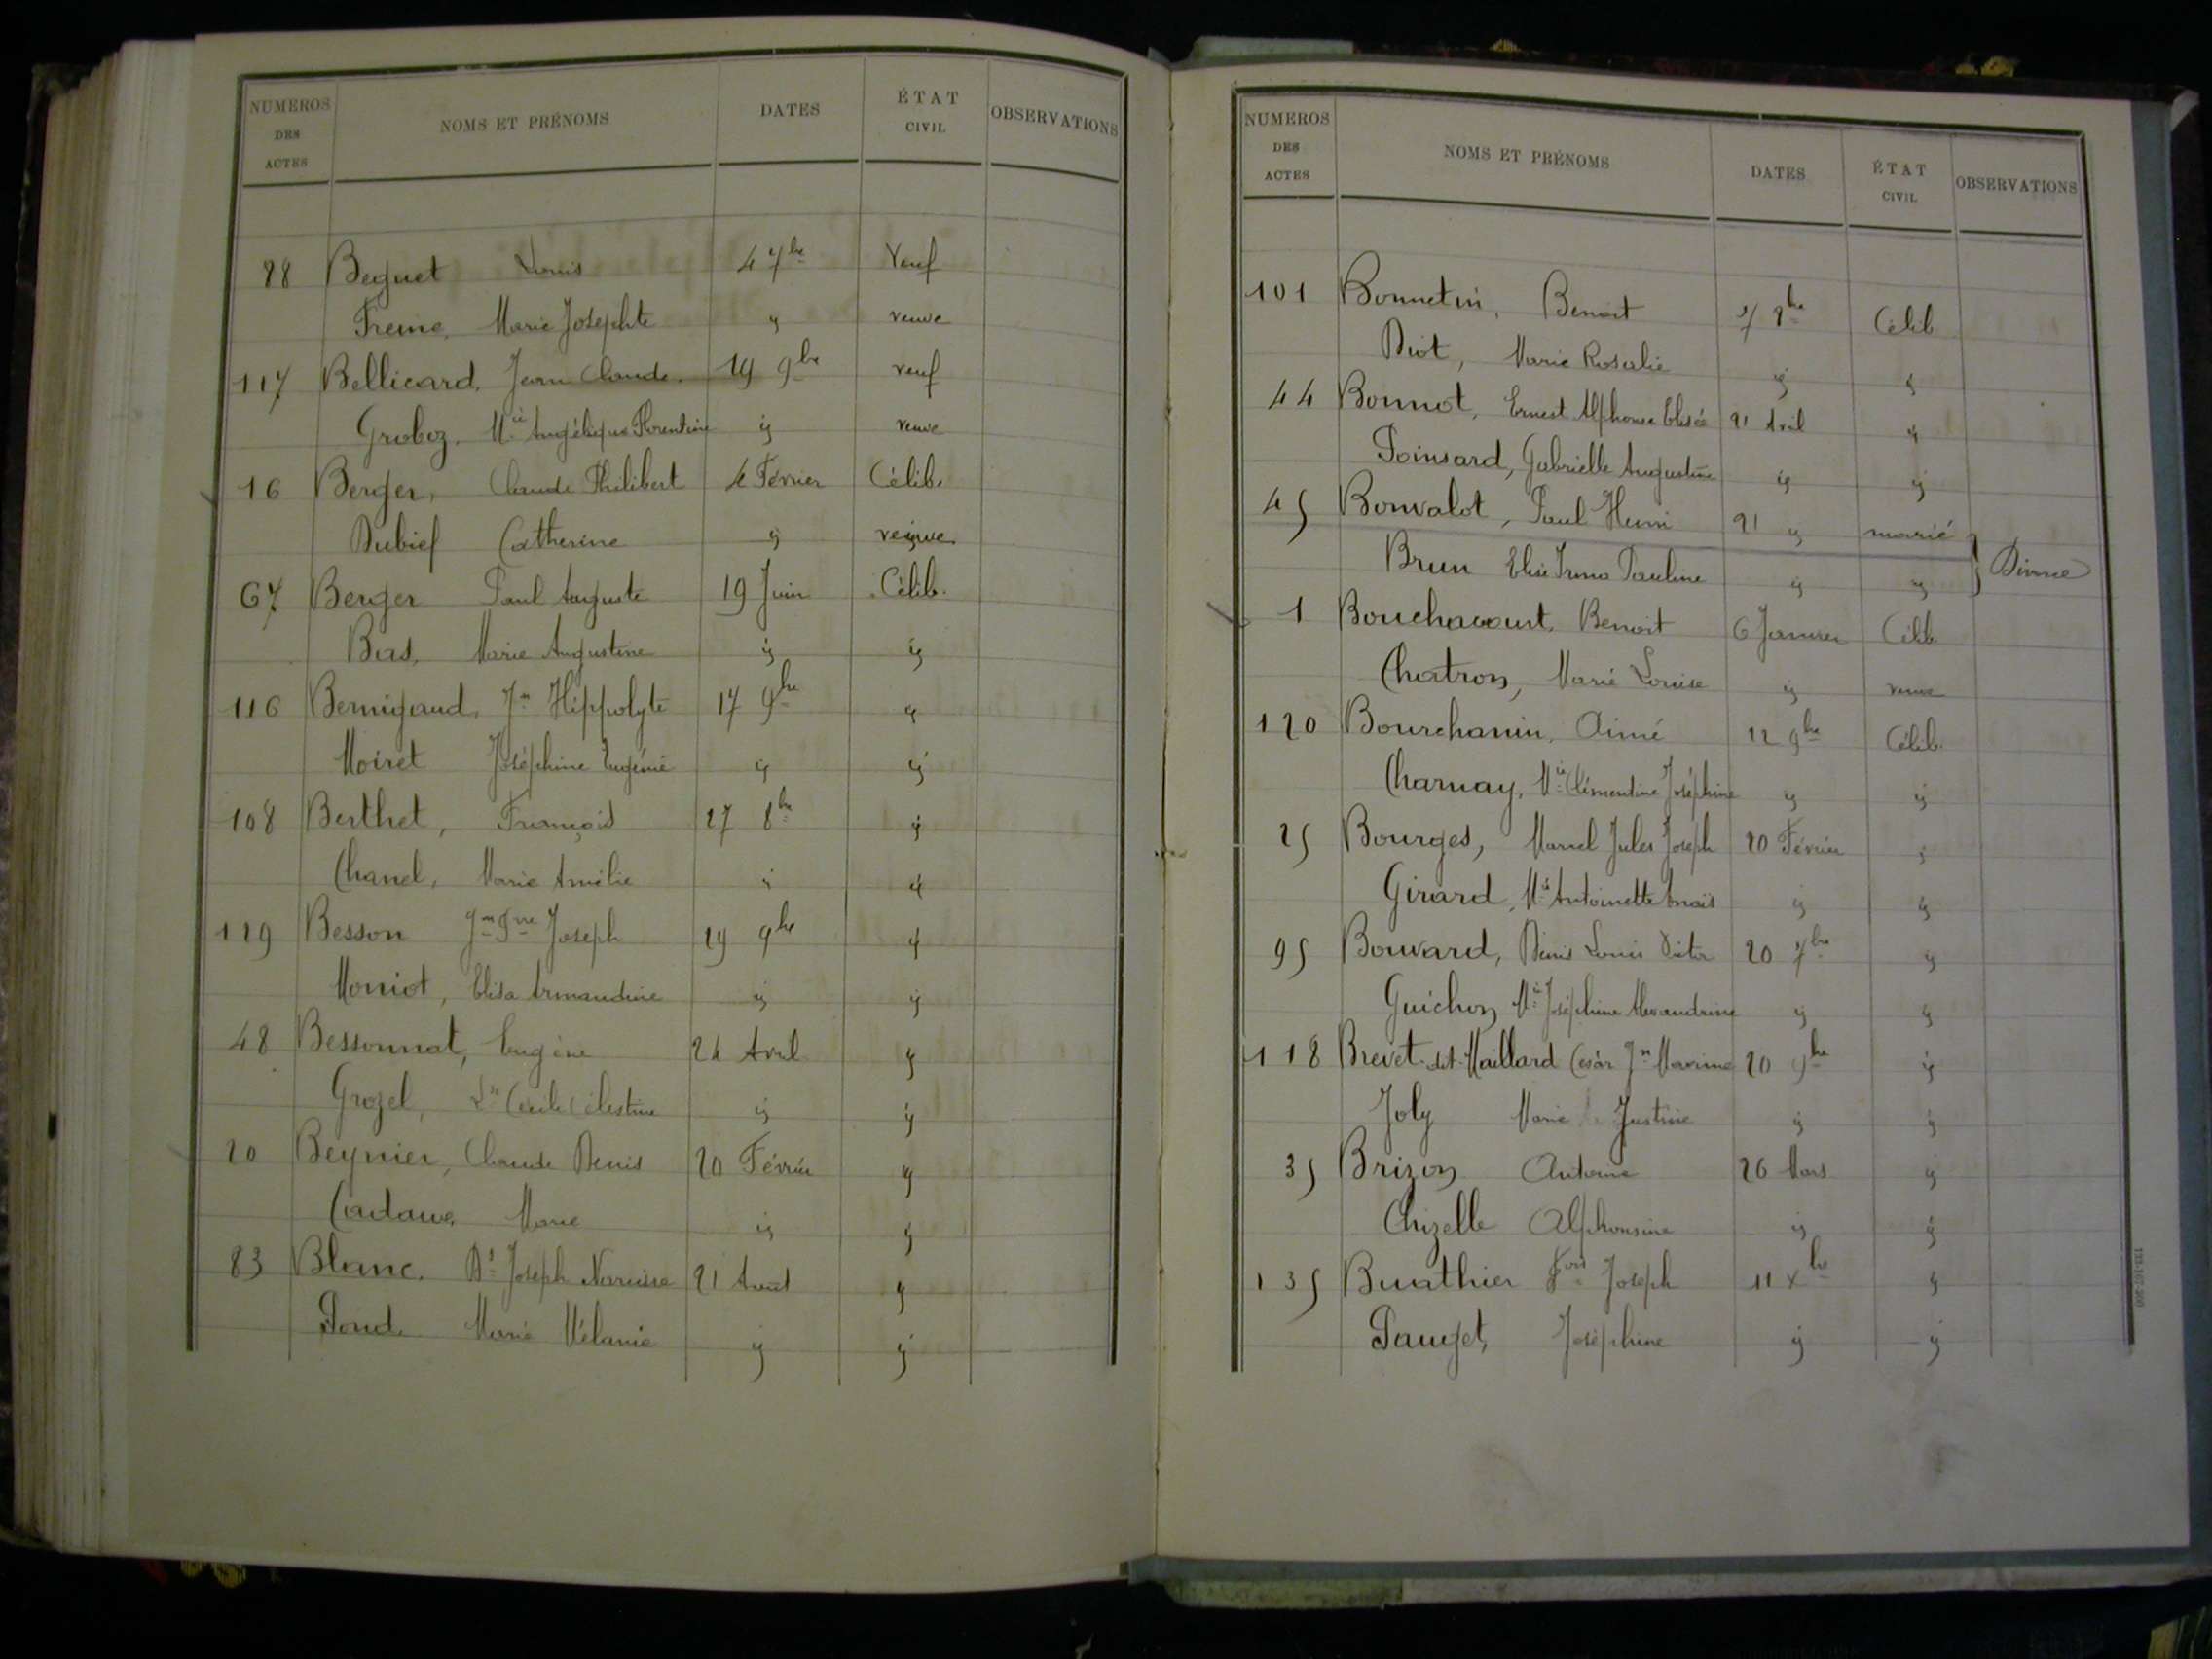 NUMEROS DES ACTES NOMS ET PRÉNOMS DATES ÉTAT CIVIL OBSERVATIONS
88 Beguet Louis 4 7bre Veuf
Freine, Marie Josephte ij veuve
117 Bellicard, Jean Claude. 19 9bre veuf
Groboz, Mie Angélique Florentine ij veuve
16 Berger, Claude Philibert 4 Février Célib.
Dubief Catherine ij veuve
67 Berger Paul Auguste 19 Juin Célib.
Bas, Marie Augustine ij ij
116 Bernigaud, Jn Hippolyte 17 9bre ij
Moiret Joséphine Eugénie ij ij
108 Berthet, François 27 8bre ij
Chanel, Marie Amélie ij ij
119 Besson Jn Joseph 29 9bre ij
Moniot, Elisa Armandine ij ij
48 Bessonnat, Eugène 24 Avril ij
Grozel, Lse Cécile Célestine ij ij
20 Beynier, Claude Denis 20 Février ij
Marie ij ij
83 Blanc, Joseph Narcisse 21 Août ij
Pond, Marie Mélanie ij ij
NUMEROS DES ACTES NOMS ET PRÉNOMS DATES ÉTAT CIVIL OBSERVATIONS
101 Bonnetin, Benoit 2 8bre Célib
Diot, Marie Rosalie ij ij
44 Bonnot, Ernest Alphonse Elisée 21 Avril ij
Poinsard, Gabrielle Augustine ij ij
45 Bonvalot, Paul Henri 21 ij marié
Brun Elise Irma Pauline ij ij } Divorce
1 Bouchacourt, Benoit 6 Janvier Célib.
Chatron, Marie Louise ij veuve
120 Bourchanin, Aimé 12 9bre Célib.
Charnay, Mie Clémentine Joséphine ij ij
25 Bourges, Marcel Jules Joseph 20 Février ij
Girard, Mie Antoinette Anaïs ij ij
95 Bouvard, Denis Louis Victor 20 7bre ij
Guichon Mie Joséphine Alexandrine ij ij
118 Brevet dit Maillard César Jn Maxime 20 9bre ij
Joly Marie Justine ij ij
35 Brizon Antoine 26 Mars ij
Chizelle Alphonsine ij ij
135 Buathier Fois Joseph 11 Xbre ij
Pauget, Joséphine ij ij